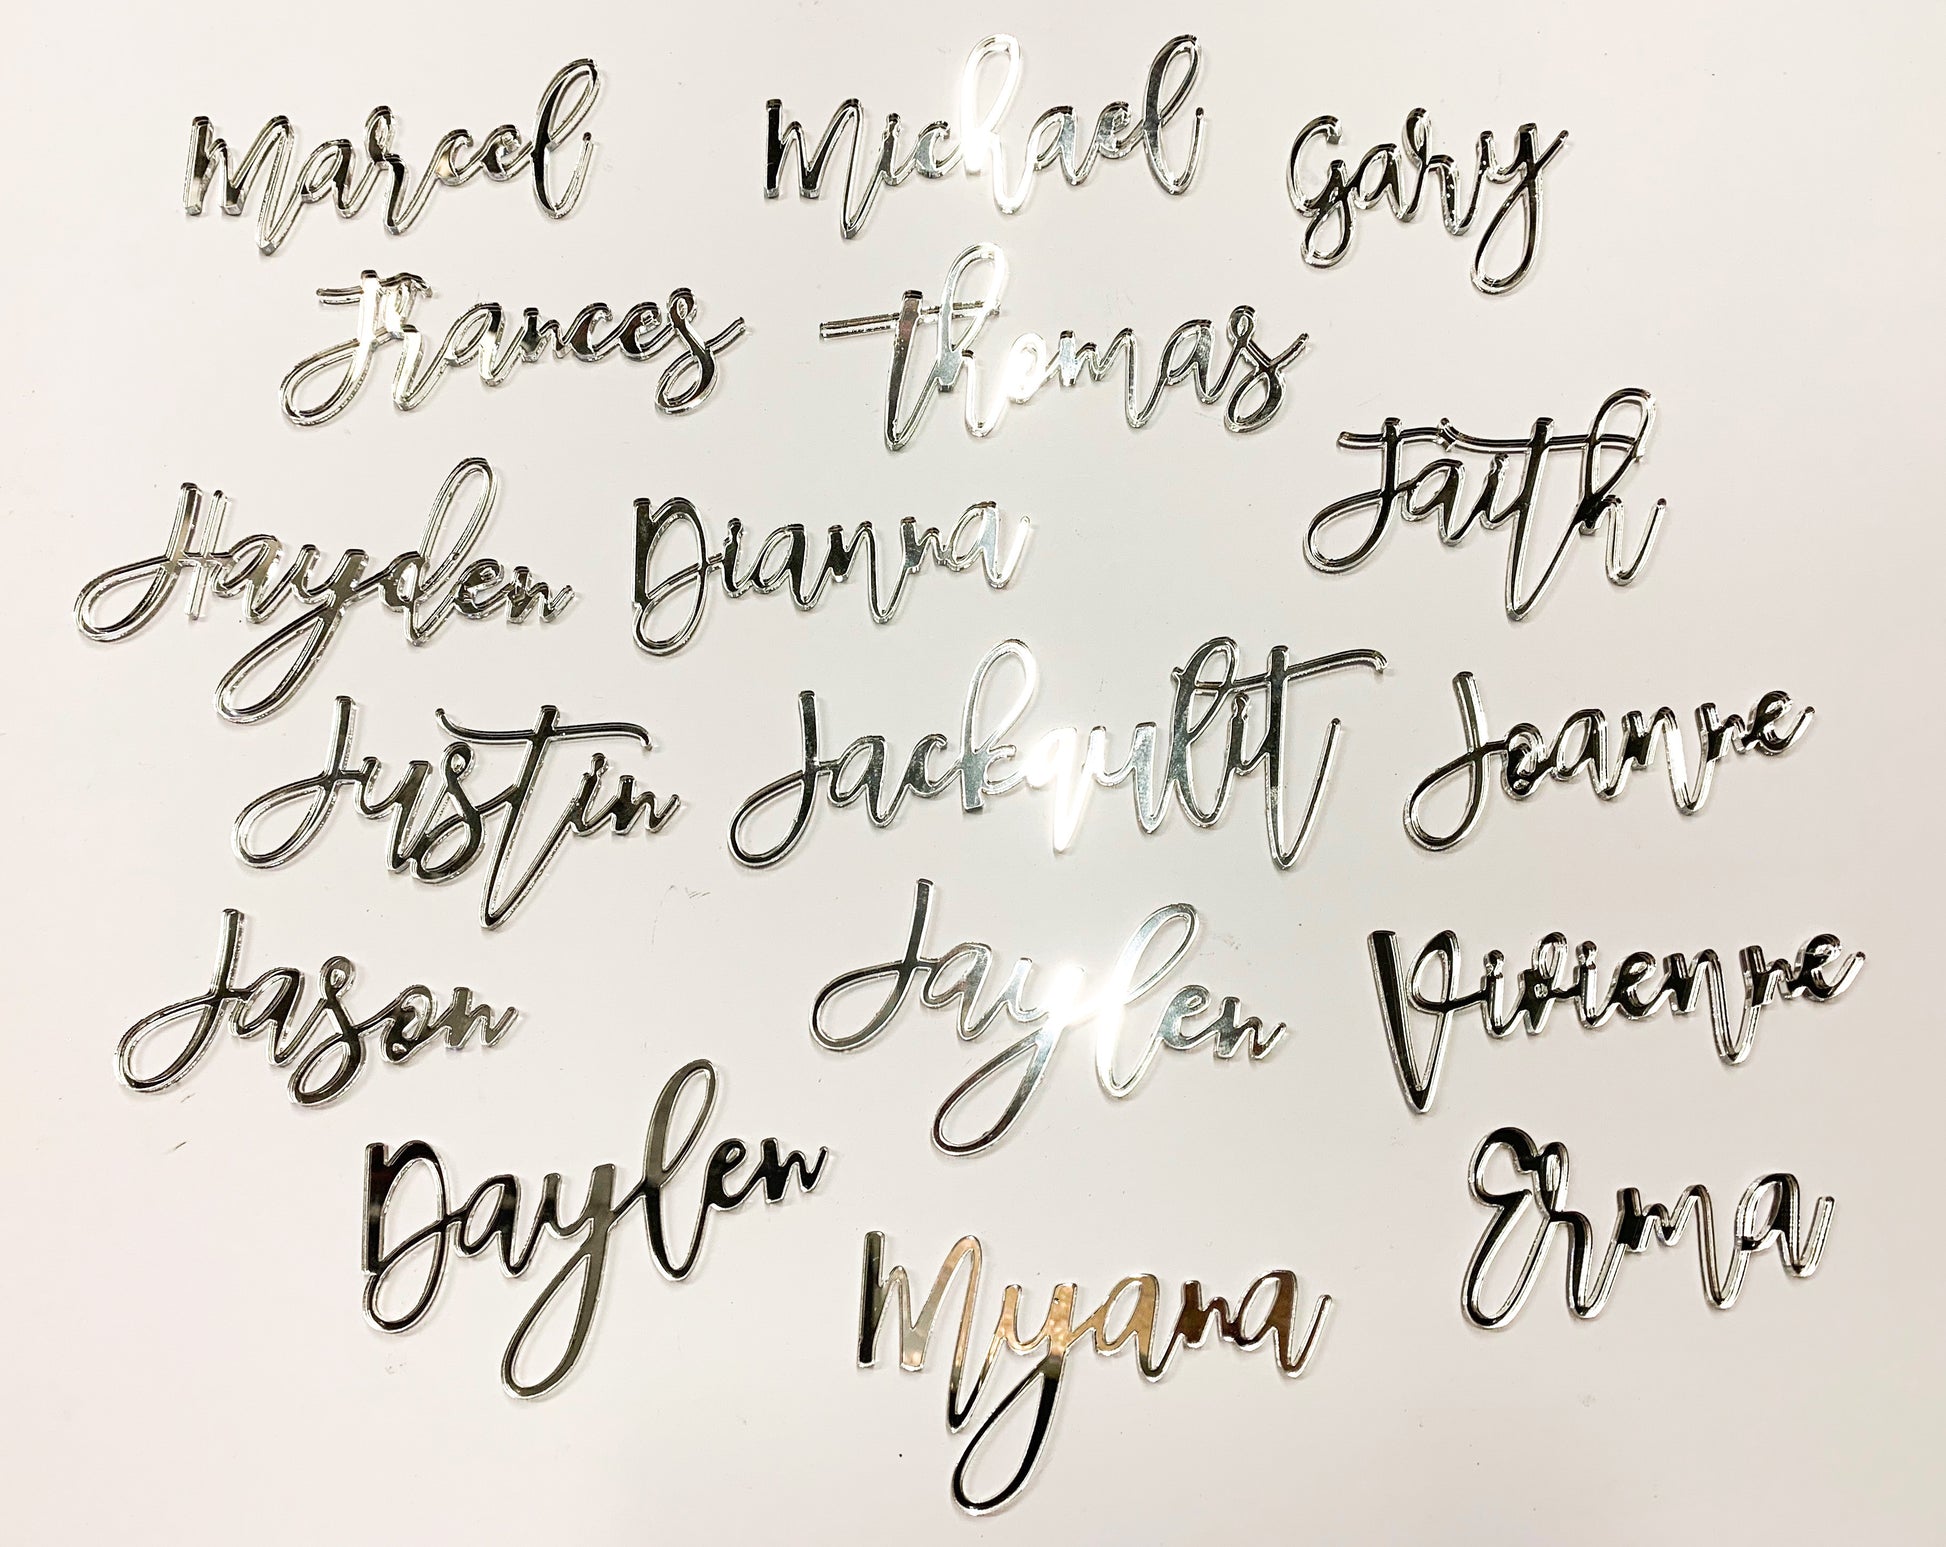 Marcel Michael Gary
Frances Thomas
Faith
Hayden Dianna
Justin Jackqulit Joanne
Jason Jaylen Vivienne
Daylen Erma
Myana